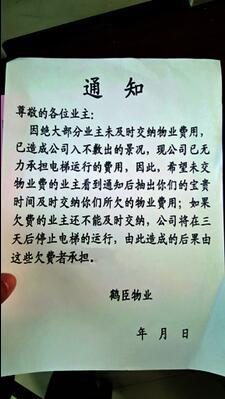 通知
尊敬的各位业主：
因绝大部分业主未及时交纳物业费用，
已造成公司入不敷出的景况，现公司已无
力承担电梯运行的费用，因此，希望未交
物业费的业主看到通知后抽出你们的宝贵
时间及时交纳你们所欠的物业费用；如果
欠费的业主还不能及时交纳，公司将在三
天后停止电梯的运行，由此造成的后果由
这些欠费者承担．
鹤臣物业
年 月 日